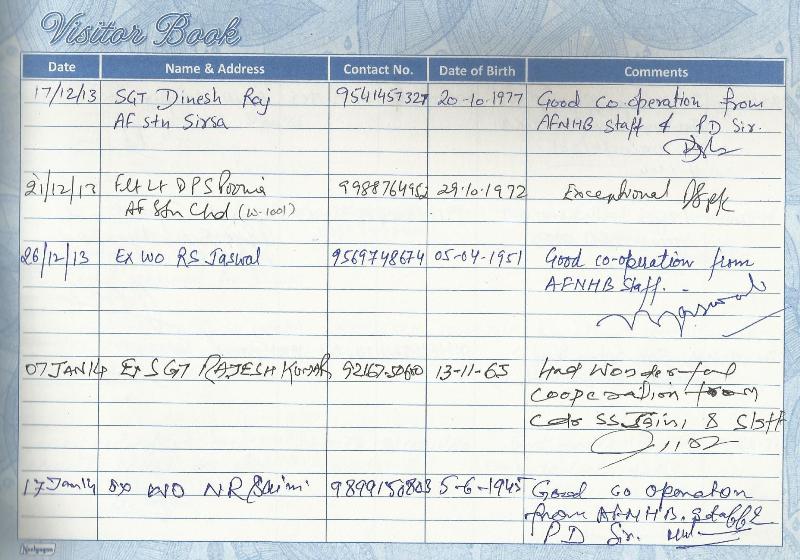 Visitor Book
Date Name & Address Contact No. Date of Birth Comments
17/12/13 SGT Dinesh Raj 9541457327 20-10-1977 Good co.operation from
AF stn Sirsa AFNHB Staff & P D Sir.
21/12/13 Flt Lt D P S 9988764952 29.10.1972 Exceptional
AF Stn Chd (W-1001)
26/12/13 Ex WO RS Jaswal 9569748674 05-04-1951 Good co-operation from
AFNHB Staff.
07 JAN 14 EX SGT RAJESH KUMAR 13-11-65 Had wonderful
cooperation from
Cdr SS Jain, & Staff
17 Jan 14 Ex WO NR Saini 5-6-1945 Good co operation
from AFNHB. Staff &
P D Sir.
Neelgagan